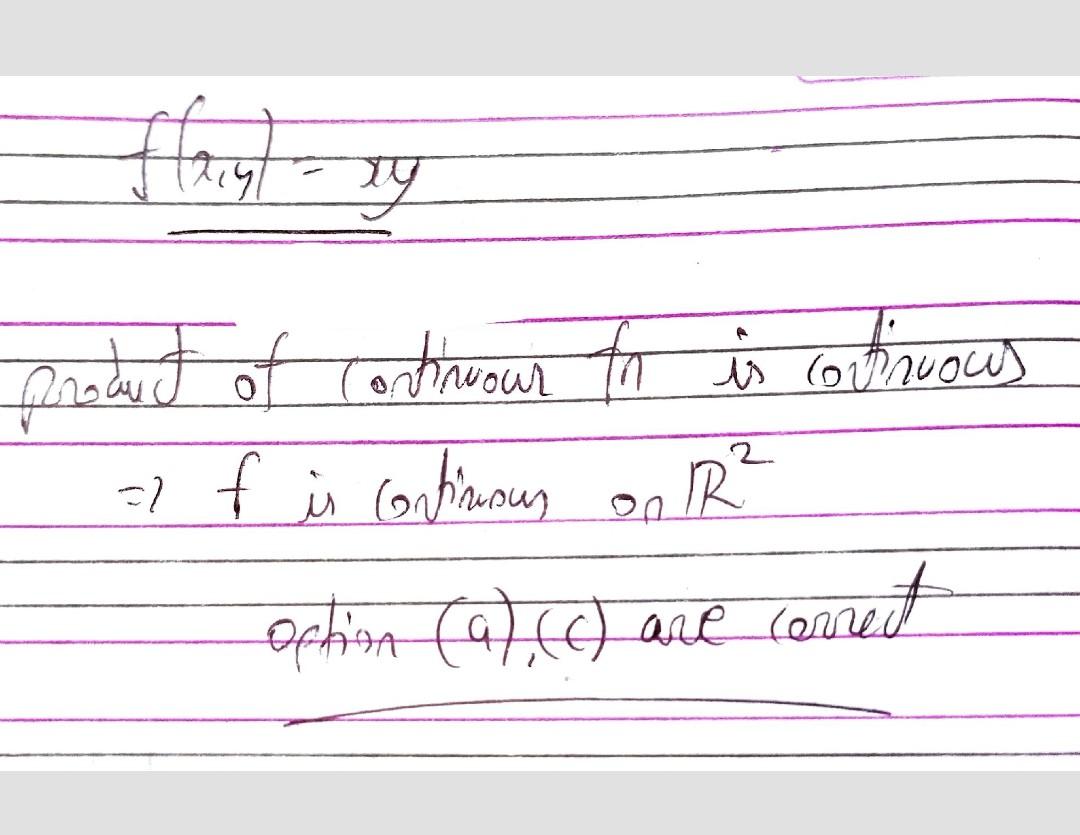 f(x,y) = xy
product of continuous fn is continuous
=> f is continuous on ℝ²
option (a), (c) are correct